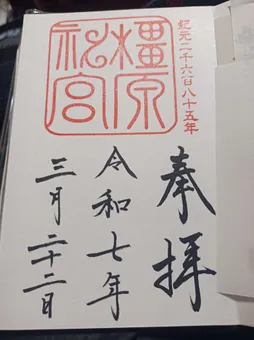 紀元二千六百八十五年
橿原
神宮
奉拝
令和七年
三月二十二日